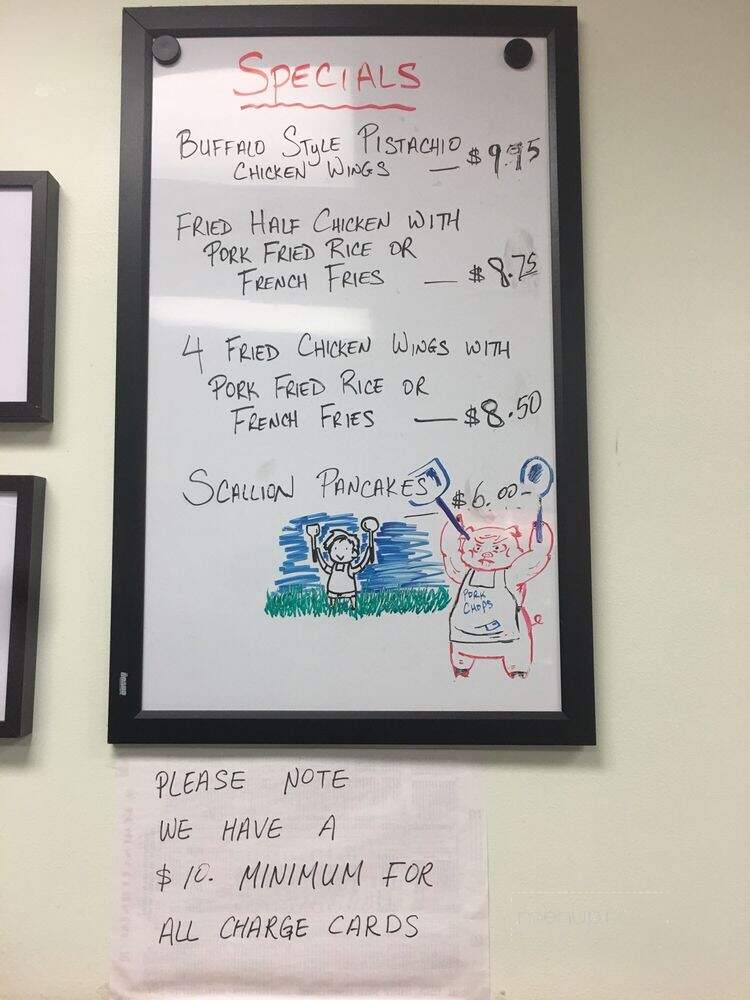 SPECIALS
BUFFALO STYLE PISTACHIO
CHICKEN WINGS — $9.95
FRIED HALF CHICKEN WITH
PORK FRIED RICE OR
FRENCH FRIES — $8.75
4 FRIED CHICKEN WINGS WITH
PORK FRIED RICE OR
FRENCH FRIES — $8.50
SCALLION PANCAKES — $6.00-
PORK
CHOPS
PLEASE NOTE
WE HAVE A
$10. MINIMUM FOR
ALL CHARGE CARDS